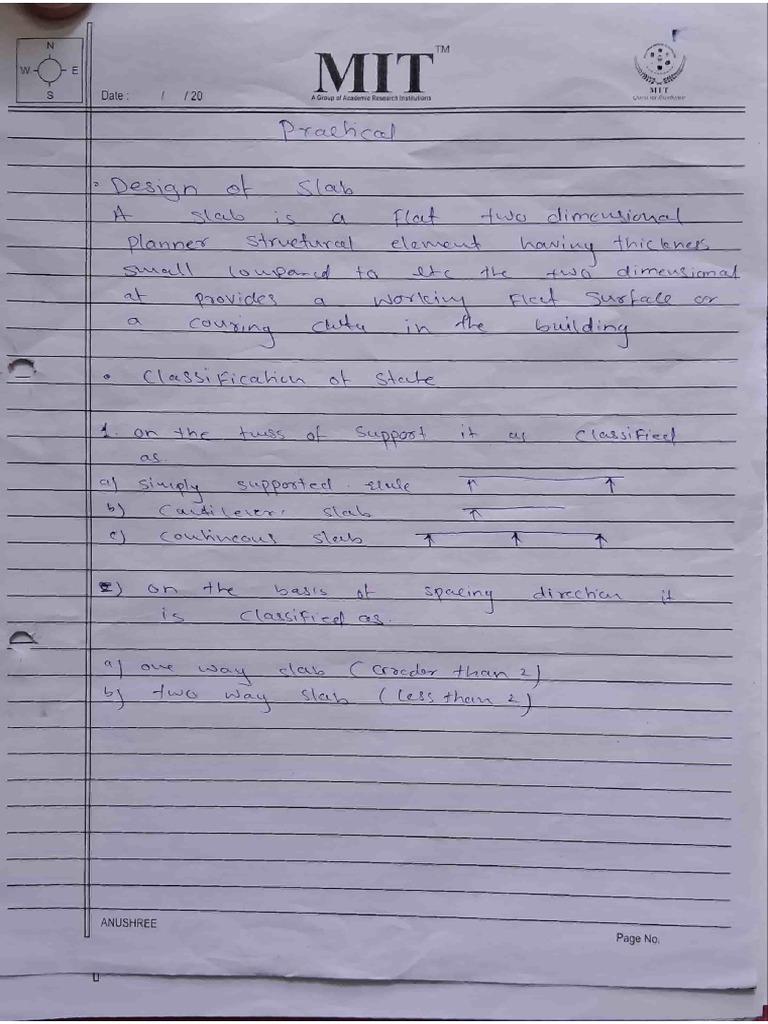 N
W E
S
Date : / / 20
MIT TM
A Group of Academic Research Institutions
MIT
Practical
Design of Slab
A slab is a flat two dimensional
planner structural element having thickness
small compared to etc the two dimensional
at provides a working flat surface or
a couring in the building
Classification of State
1. on the of support it as classified
as.
a) simply supported
b) Cantilever slab
c) contineous slab
2) on the basis of spacing direction it
is classified as.
a) one way slab (Greader than 2)
b) two way slab (less than 2)
ANUSHREE
Page No.